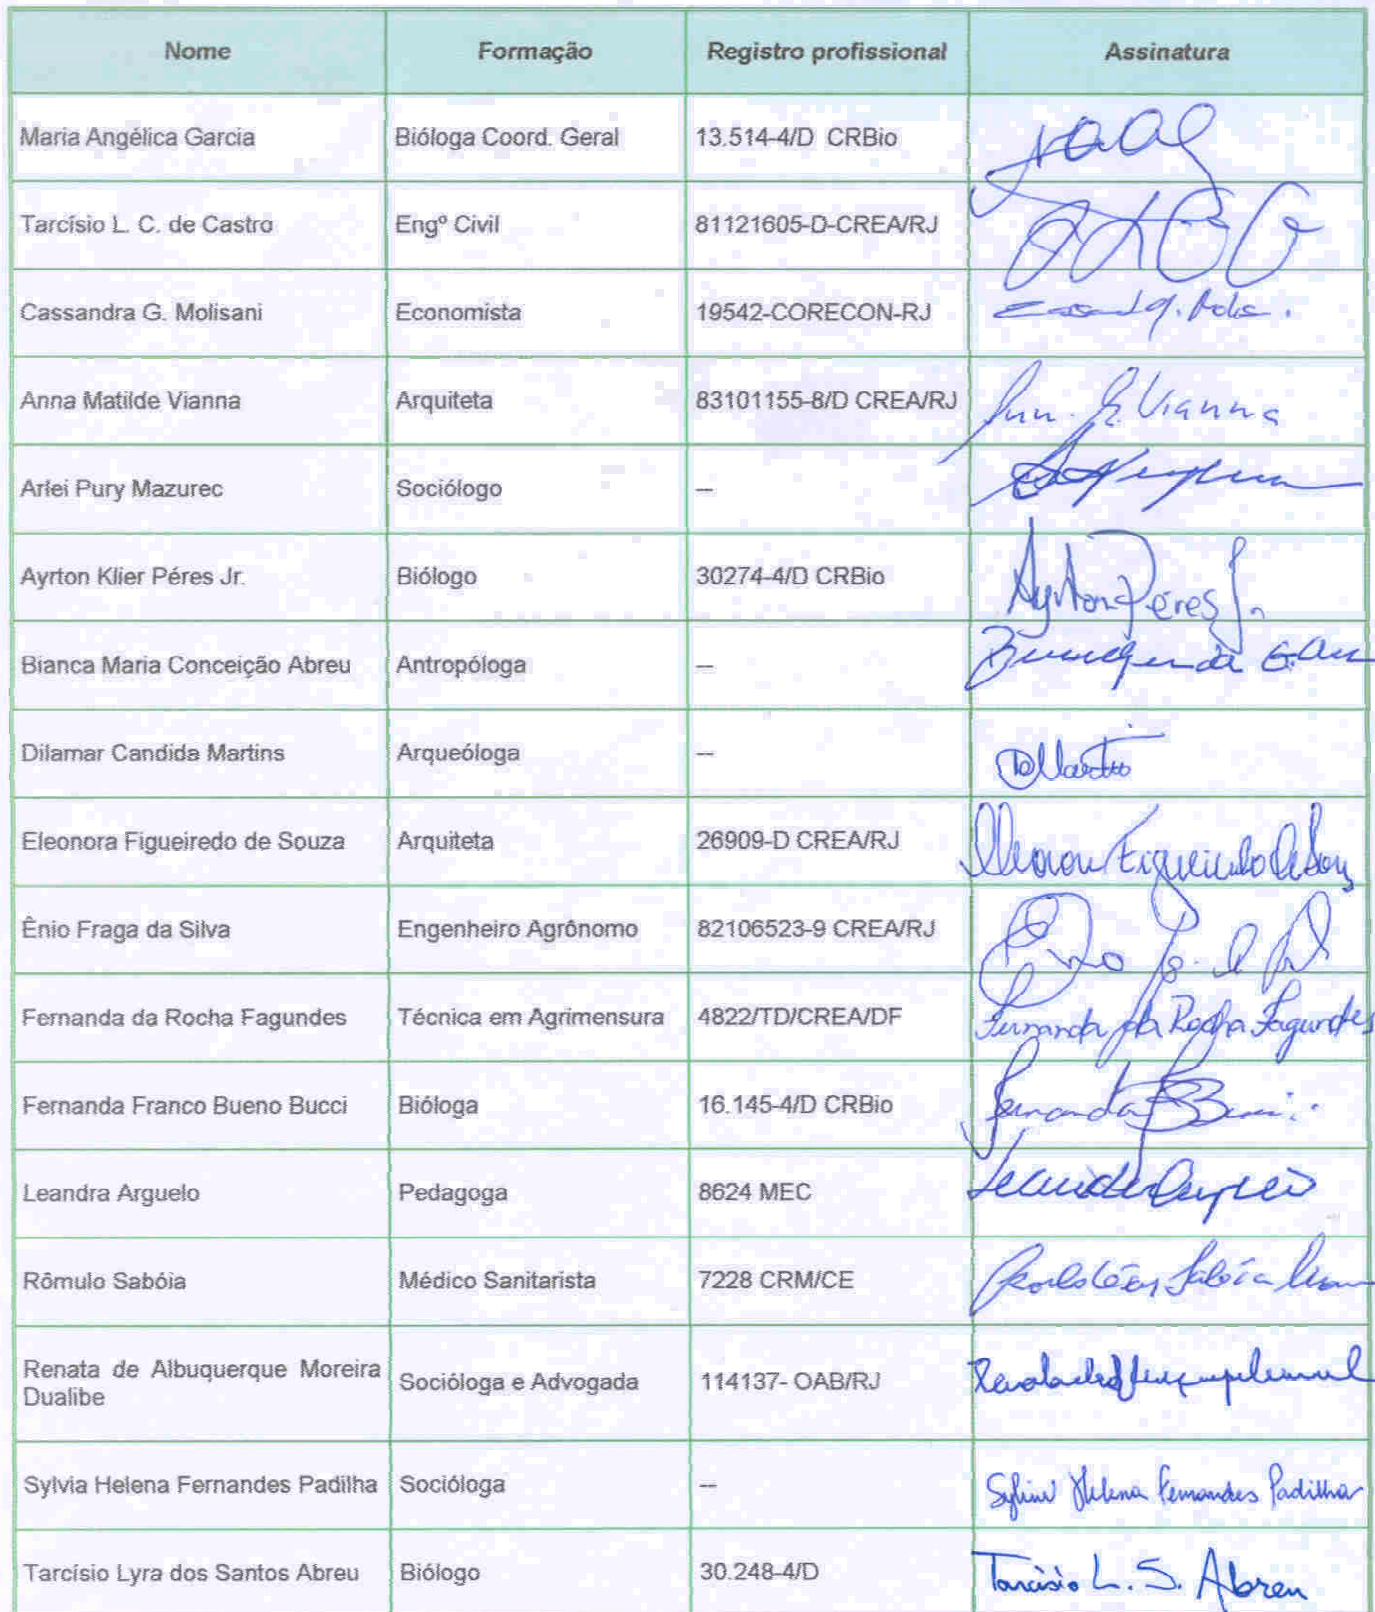 Nome Formação Registro profissional Assinatura
Maria Angélica Garcia Bióloga Coord. Geral 13.514-4/D CRBio
Tarcísio L. C. de Castro Engº Civil 81121605-D-CREA/RJ
Cassandra G. Molisani Economista 19542-CORECON-RJ
Anna Matilde Vianna Arquiteta 83101155-8/D CREA/RJ Vianna
Arlei Pury Mazurec Sociólogo --
Ayrton Klier Péres Jr. Biólogo 30274-4/D CRBio Ayrton Péres Jr.
Bianca Maria Conceição Abreu Antropóloga --
Dilamar Candida Martins Arqueóloga -- DMartins
Eleonora Figueiredo de Souza Arquiteta 26909-D CREA/RJ Eleonora Figueiredo de Souza
Ênio Fraga da Silva Engenheiro Agrônomo 82106523-9 CREA/RJ
Fernanda da Rocha Fagundes Técnica em Agrimensura 4822/TD/CREA/DF Fernanda da Rocha Fagundes
Fernanda Franco Bueno Bucci Bióloga 16.145-4/D CRBio Fernanda
Leandra Arguelo Pedagoga 8624 MEC
Rômulo Sabóia Médico Sanitarista 7228 CRM/CE Sabóia
Renata de Albuquerque Moreira
Dualibe Socióloga e Advogada 114137- OAB/RJ
Sylvia Helena Fernandes Padilha Socióloga -- Sylvia Helena Fernandes Padilha
Tarcísio Lyra dos Santos Abreu Biólogo 30.248-4/D Tarcísio L. S. Abreu